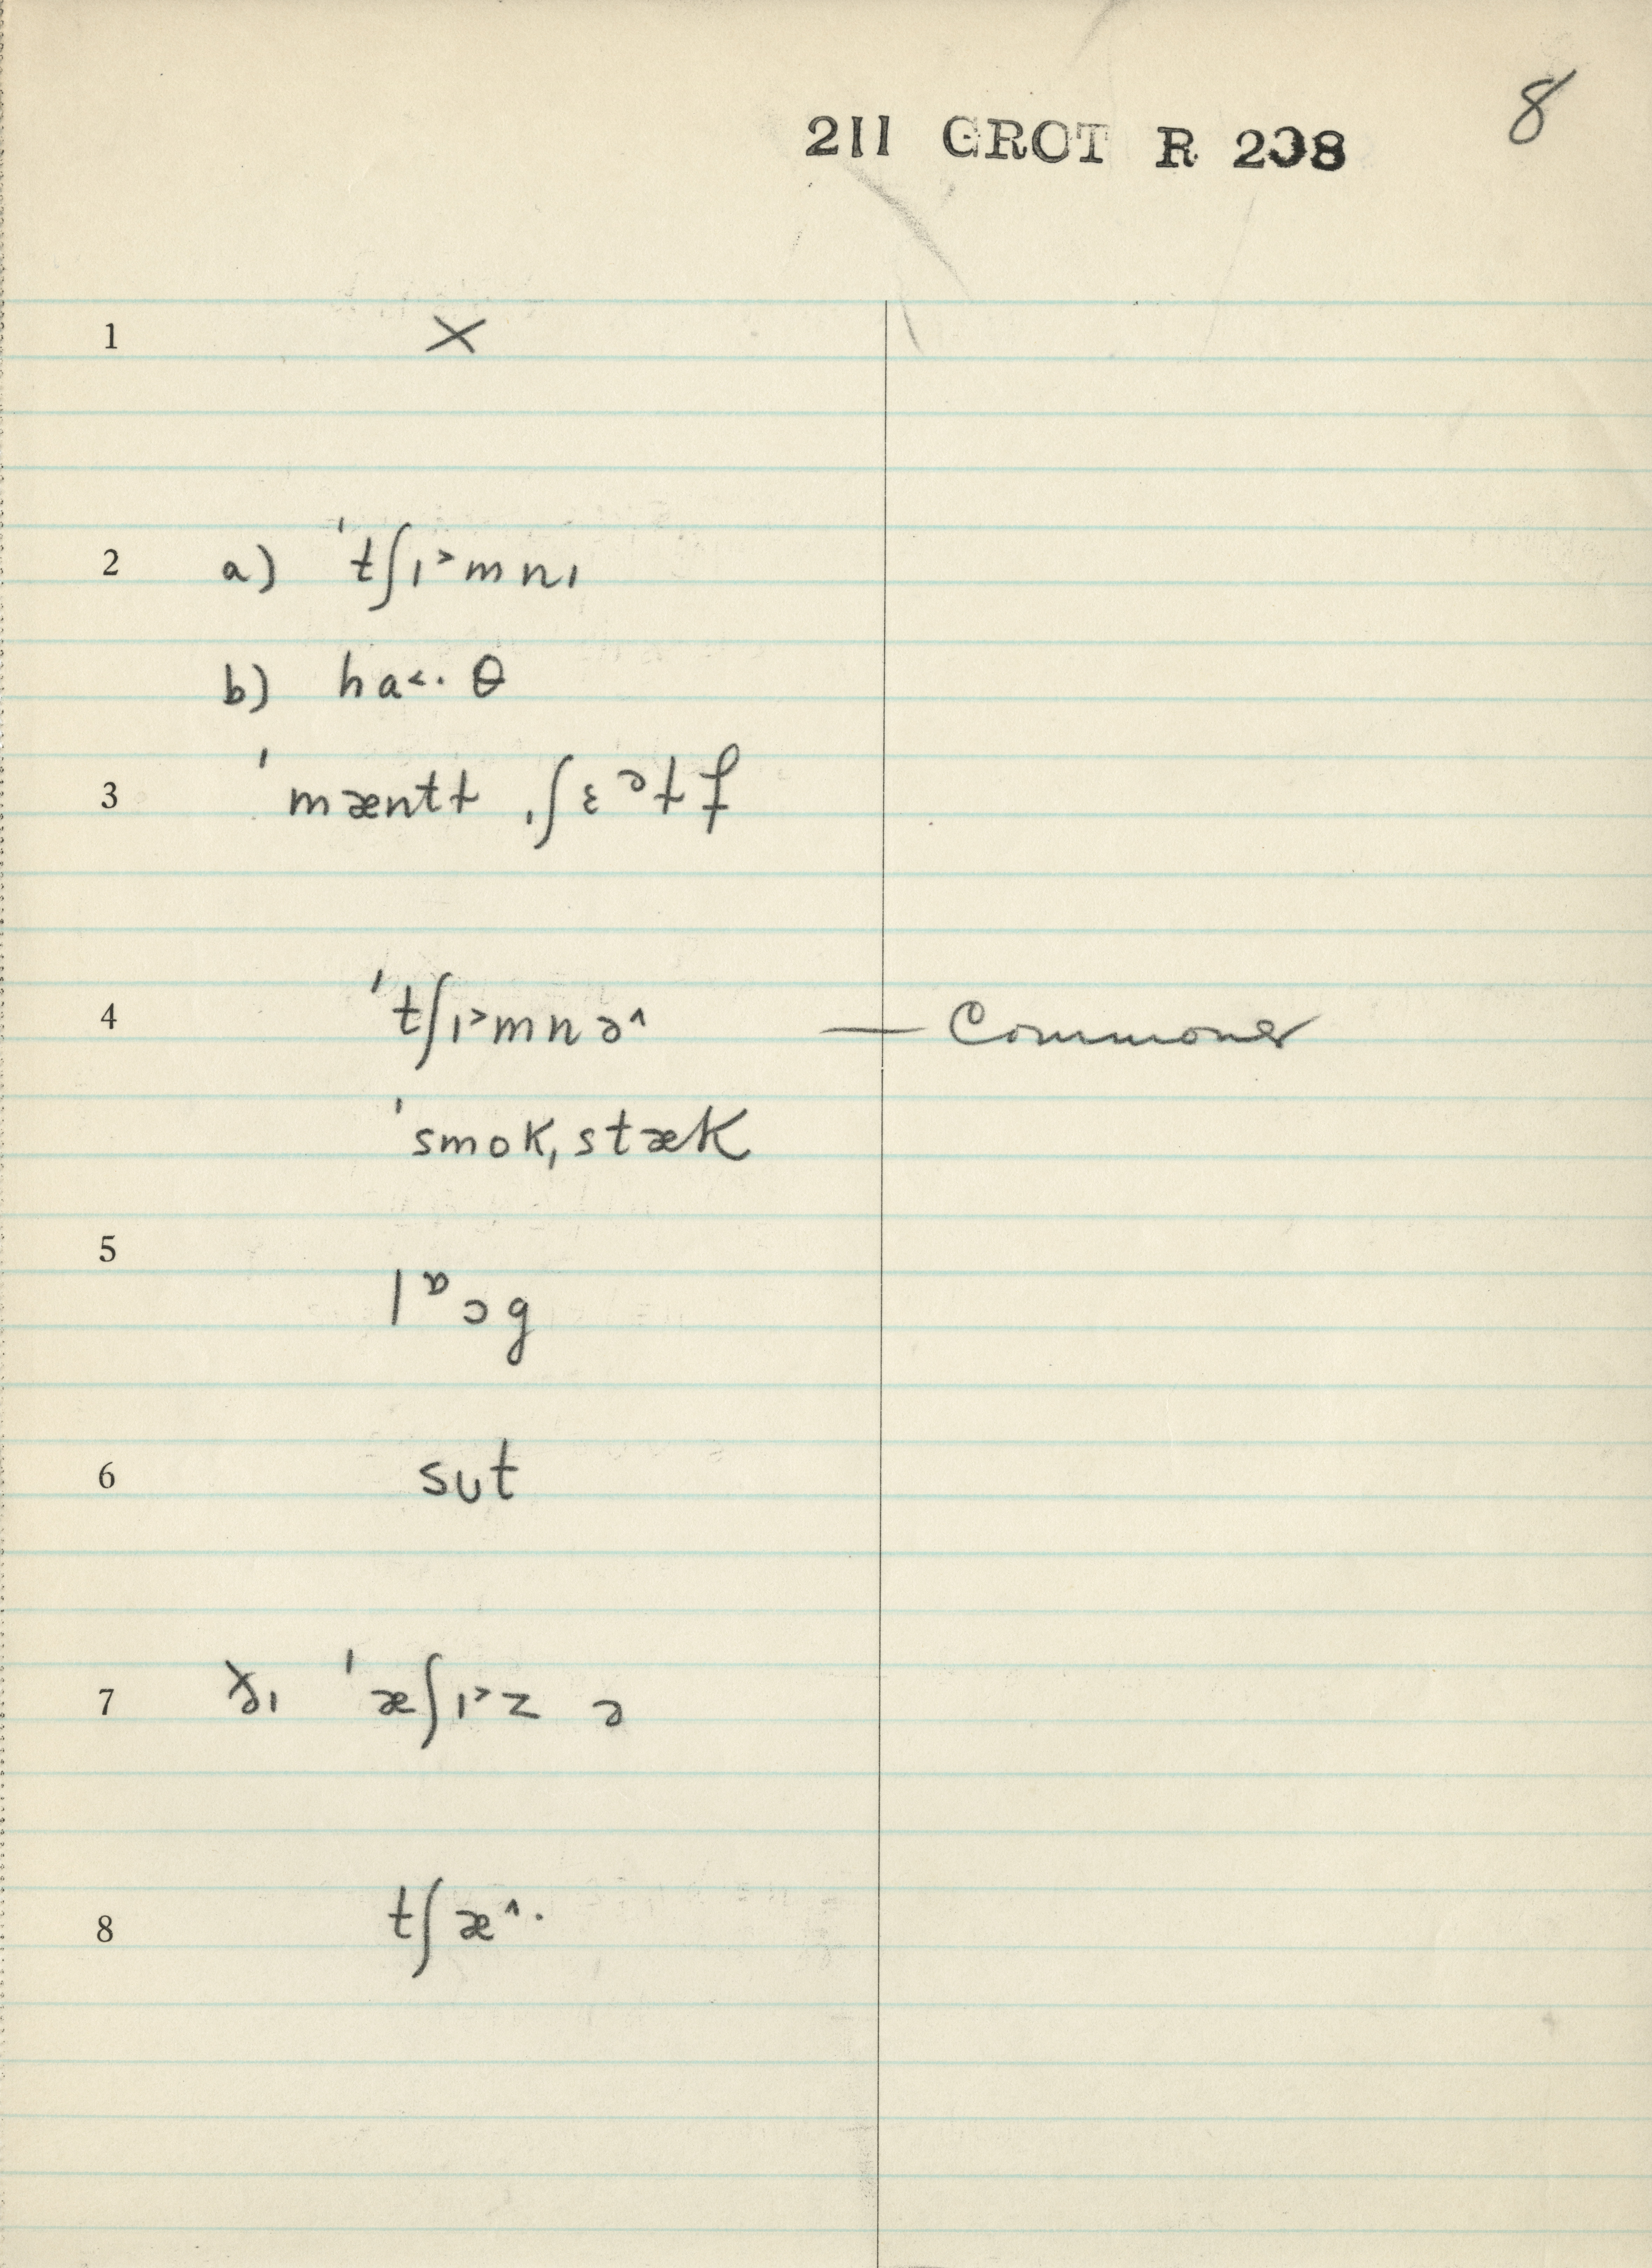 8
211 GROT R 208
1 ×
2 a) ˈtʃɪ˃mnɪ
b) ha˂· θ
3 ˈmæntɫ ˌʃɛᵊɫf
4 ˈtʃɪ˃mnə˄ — Commoner
ˈsmokˌstæk
5 lᶛɔg
6 sᴜt
7 ðɪ ˈæʃɪ˃z ə
8 tʃæ˄·